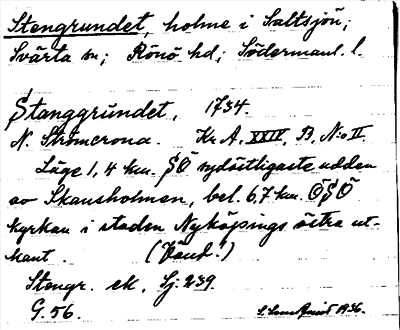 Stengrundet, holme i Saltsjön;
Svärta sn; Rönö hd; Södermanl. l.
Stanggrundet, 1734.
N. Strömcrona. Kr. A, XXIV, B, N:o II.
Läge 1,4 km. SO sydöstligaste udden
av Skansholmen, bel. 6,7 km. OSO
kyrkan i staden Nyköpings östra ut-
kant. (Vand.)
Stengr. ek. Sj. 239.
G. 56.
1936.